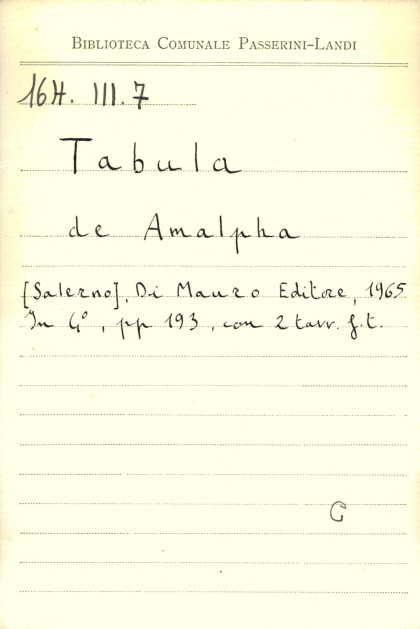 BIBLIOTECA COMUNALE PASSERINI-LANDI
16H. III. 7
Tabula
de Amalpha
[Salerno], Di Mauro Editore, 1965
In 4°, pp 193, con 2 tavv. f.t.
G